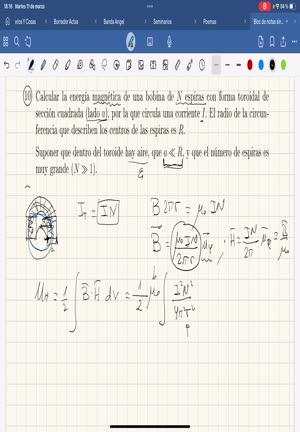 18:16 Martes 11 de marzo
54 %
irios Y Cosas Borrador Actas Banda Angel Seminarios Poemas Bloc de notas sin...
10 Calcular la energía magnética de una bobina de N espiras con forma toroidal de
sección cuadrada (lado a), por la que circula una corriente I. El radio de la circun-
ferencia que describen los centros de las espiras es R.
Suponer que dentro del toroide hay aire, que a ≪ R, y que el número de espiras es
muy grande (N ≫ 1).
I_T = IN B 2πr = μ₀ IN
B⃗ = μ₀IN/2πr u⃗φ ; H⃗ = IN/2π u⃗φ = B⃗/μ₀
U_H = 1/2 ∫ B⃗·H⃗ dV = 1/2 μ₀ ∫ I²N²/4π²r²